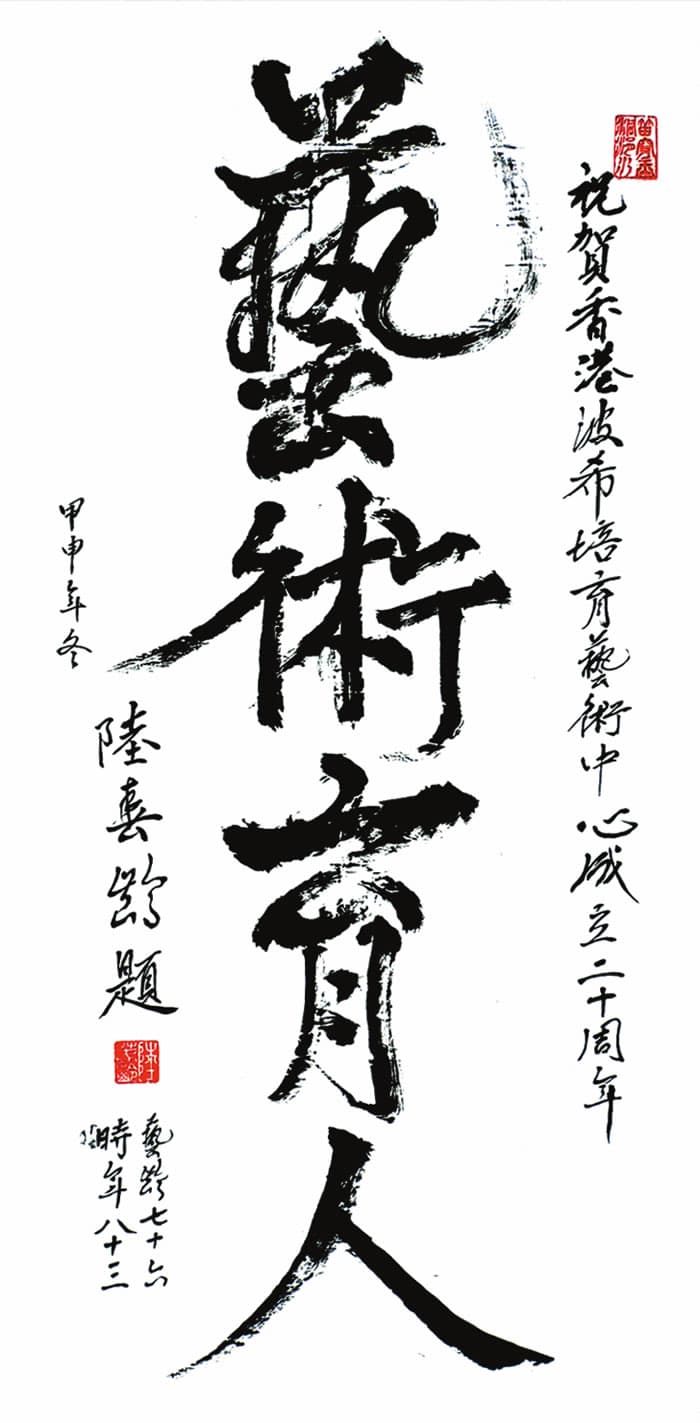 祝賀香港波希培育藝術中心成立二十周年
藝術育人
甲申年冬
陸春齡題
藝齡七十六
時年八十三